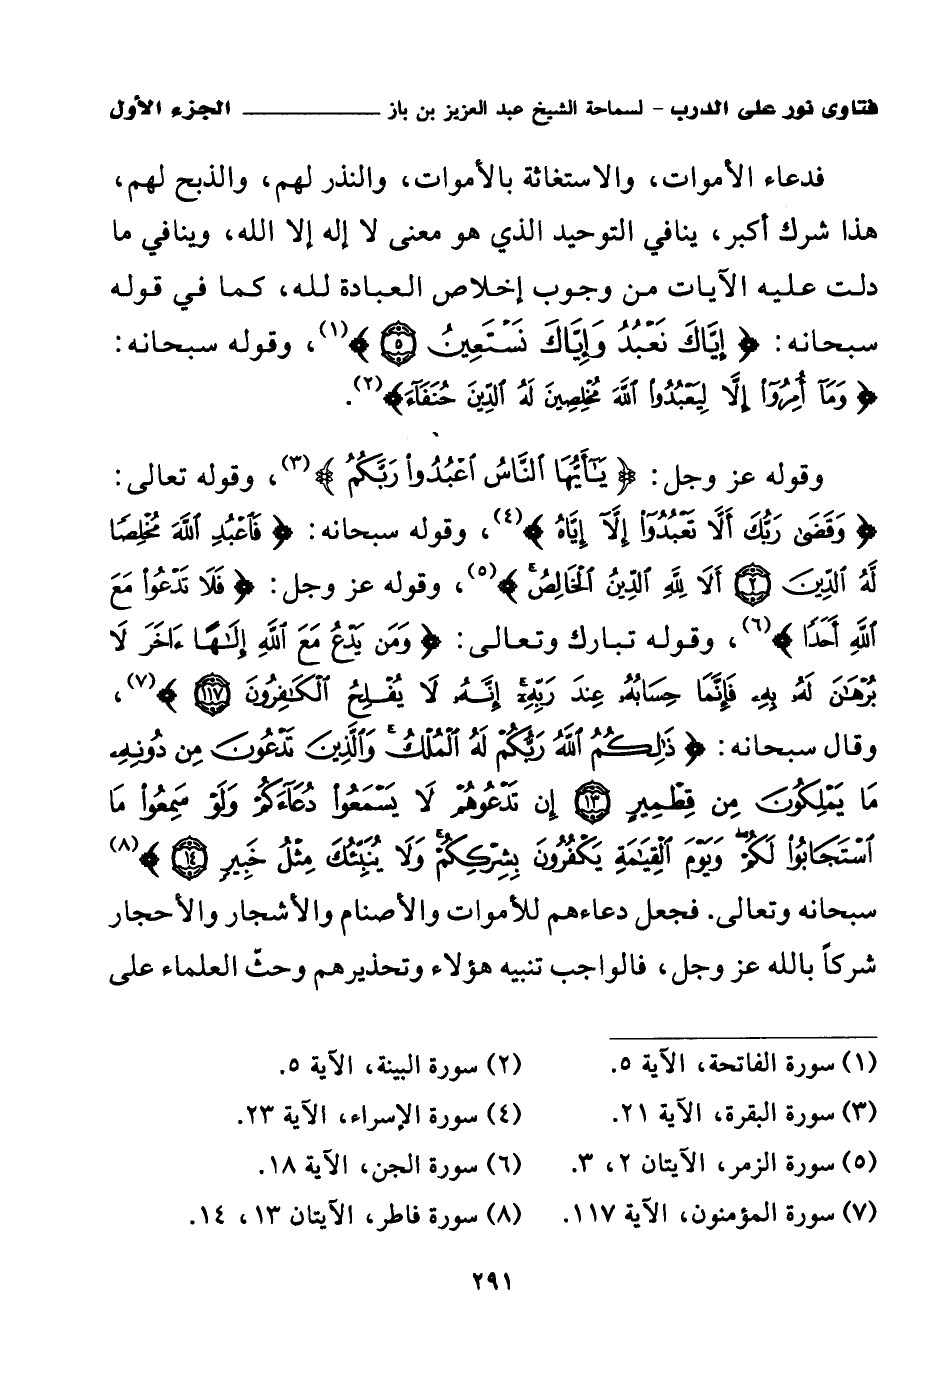 فتاوى نور على الدرب - لسماحة الشيخ عبد العزيز بن باز ــــــــــــــ الجزء الأول
فدعاء الأموات، والاستغاثة بالأموات، والنذر لهم، والذبح لهم،
هذا شرك أكبر، ينافي التوحيد الذي هو معنى لا إله إلا الله، وينافي ما
دلت عليه الآيات من وجوب إخلاص العبادة لله، كما في قوله
سبحانه: ﴿ إِيَّاكَ نَعْبُدُ وَإِيَّاكَ نَسْتَعِينُ ۝٥ ﴾(١)، وقوله سبحانه:
﴿ وَمَآ أُمِرُوٓا۟ إِلَّا لِيَعْبُدُوا۟ ٱللَّهَ مُخْلِصِينَ لَهُ ٱلدِّينَ حُنَفَآءَ﴾(٢).
وقوله عز وجل: ﴿ يَـٰٓأَيُّهَا ٱلنَّاسُ ٱعْبُدُوا۟ رَبَّكُمُ ﴾(٣)، وقوله تعالى:
﴿ وَقَضَىٰ رَبُّكَ أَلَّا تَعْبُدُوٓا۟ إِلَّآ إِيَّاهُ ﴾(٤)، وقوله سبحانه: ﴿ فَٱعْبُدِ ٱللَّهَ مُخْلِصًا
لَّهُ ٱلدِّينَ ۝٢ أَلَا لِلَّهِ ٱلدِّينُ ٱلْخَالِصُ ۚ ﴾(٥)، وقوله عز وجل: ﴿ فَلَا تَدْعُوا۟ مَعَ
ٱللَّهِ أَحَدًا ﴾(٦)، وقوله تبارك وتعالى: ﴿ وَمَن يَدْعُ مَعَ ٱللَّهِ إِلَـٰهًا ءَاخَرَ لَا
بُرْهَـٰنَ لَهُۥ بِهِۦ فَإِنَّمَا حِسَابُهُۥ عِندَ رَبِّهِۦٓ ۚ إِنَّهُۥ لَا يُفْلِحُ ٱلْكَـٰفِرُونَ ۝١١٧ ﴾(٧)،
وقال سبحانه: ﴿ ذَٰلِكُمُ ٱللَّهُ رَبُّكُمْ لَهُ ٱلْمُلْكُ ۚ وَٱلَّذِينَ تَدْعُونَ مِن دُونِهِۦ
مَا يَمْلِكُونَ مِن قِطْمِيرٍ ۝١٣ إِن تَدْعُوهُمْ لَا يَسْمَعُوا۟ دُعَآءَكُمْ وَلَوْ سَمِعُوا۟ مَا
ٱسْتَجَابُوا۟ لَكُمْ ۖ وَيَوْمَ ٱلْقِيَـٰمَةِ يَكْفُرُونَ بِشِرْكِكُمْ ۚ وَلَا يُنَبِّئُكَ مِثْلُ خَبِيرٍ ۝١٤ ﴾(٨)
سبحانه وتعالى. فجعل دعاءهم للأموات والأصنام والأشجار والأحجار
شركاً بالله عز وجل، فالواجب تنبيه هؤلاء وتحذيرهم وحثّ العلماء على
(١) سورة الفاتحة، الآية ٥. (٢) سورة البينة، الآية ٥.
(٣) سورة البقرة، الآية ٢١. (٤) سورة الإسراء، الآية ٢٣.
(٥) سورة الزمر، الآيتان ٢، ٣. (٦) سورة الجن، الآية ١٨.
(٧) سورة المؤمنون، الآية ١١٧. (٨) سورة فاطر، الآيتان ١٣، ١٤.
٢٩١